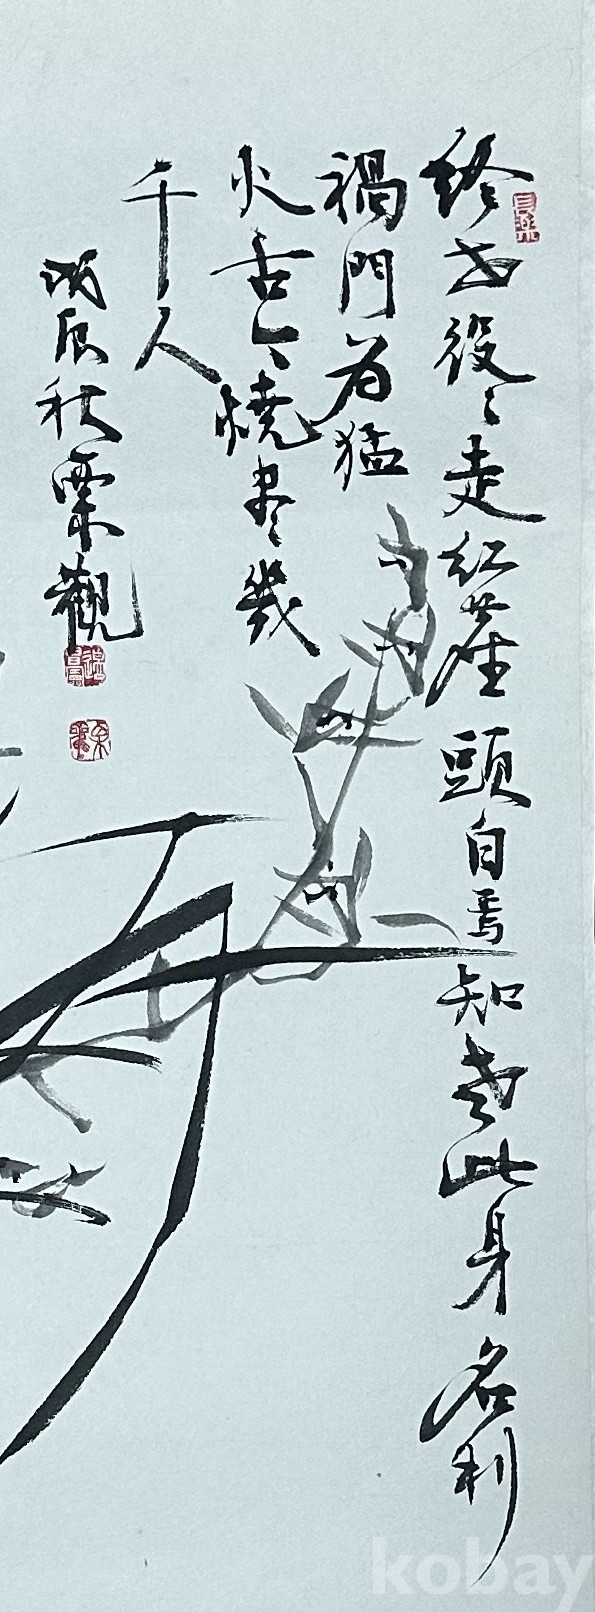 終世役々走紅塵頭白焉知老此身名利
禍門為猛
火古今燒盡幾
千人
戊辰秋栗觀
kobay